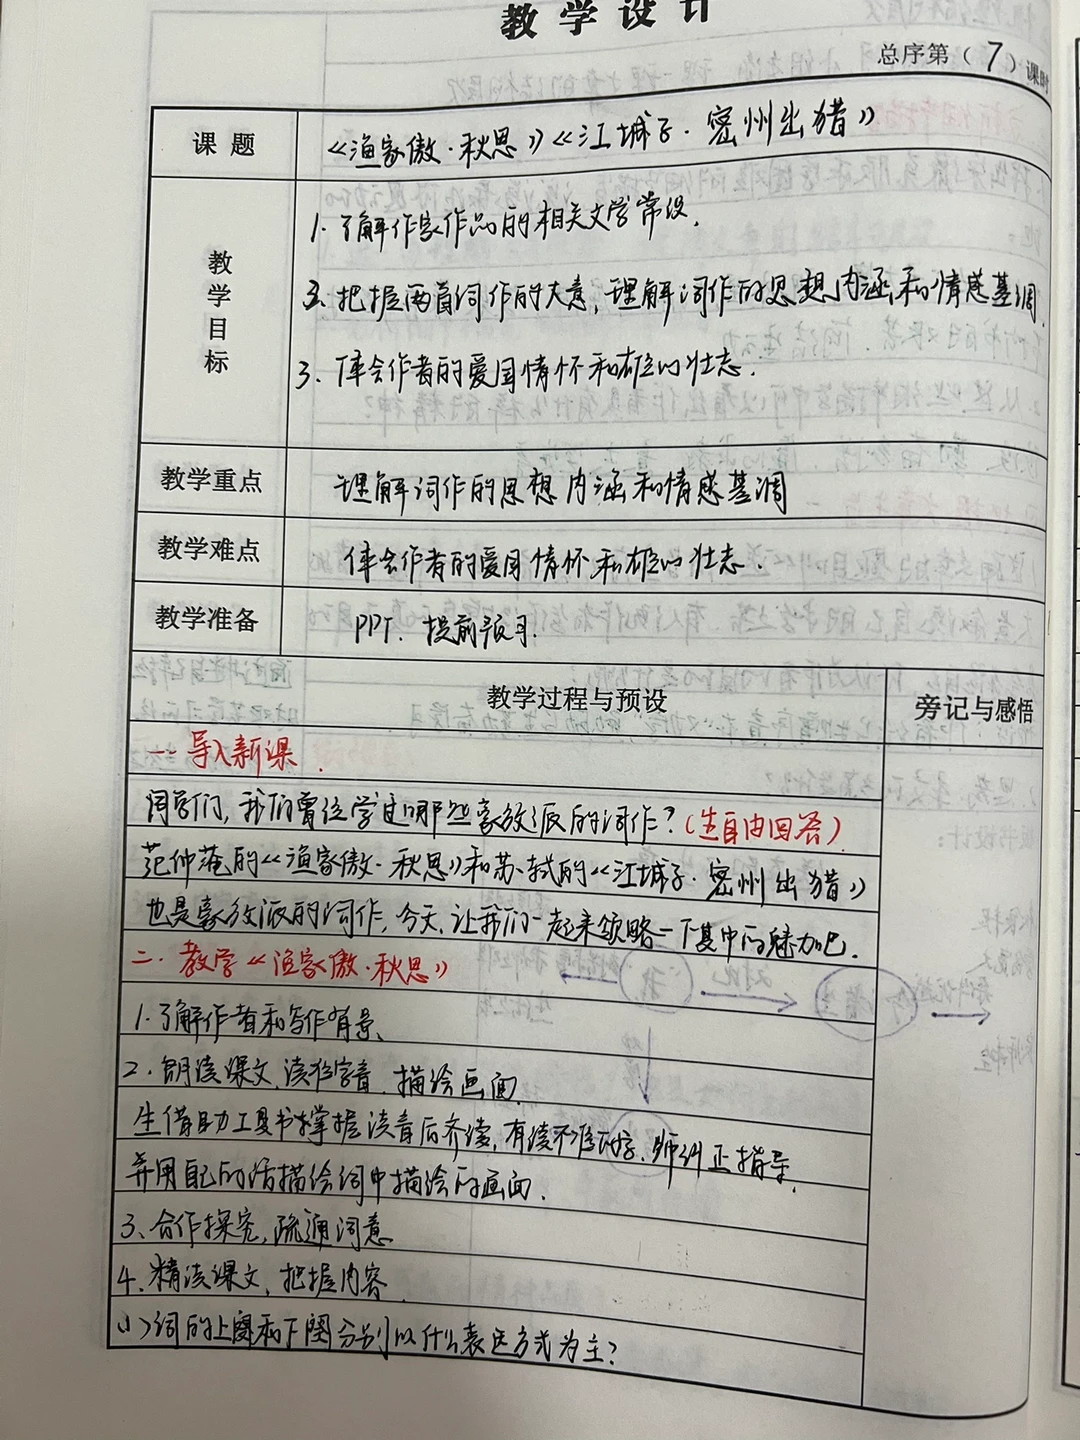 教学设计
总序第（7）课时
课题
《渔家傲·秋思》《江城子·密州出猎》
教学目标
1.了解作家作品的相关文学常识.
2.把握两首词作的大意,理解词作的思想内涵和情感基调.
3.体会作者的爱国情怀和雄心壮志.
教学重点
理解词作的思想内涵和情感基调
教学难点
体会作者的爱国情怀和雄心壮志.
教学准备
PPT.提前预习.
教学过程与预设
旁记与感悟
一.导入新课.
同学们,我们曾经学过哪些豪放派的词作?(生自由回答)
范仲淹的《渔家傲·秋思》和苏轼的《江城子·密州出猎》
也是豪放派的词作,今天,让我们一起来领略一下其中的魅力吧.
二.教学《渔家傲·秋思》
1.了解作者和写作背景.
2.朗读课文,读准字音,描绘画面.
生借助工具书掌握读音后齐读,有读不准的字,师纠正指导,
并用自己的话描绘词中描绘的画面.
3.合作探究,疏通词意
4.精读课文,把握内容.
(1)词的上阕和下阕分别以什么表达方式为主?